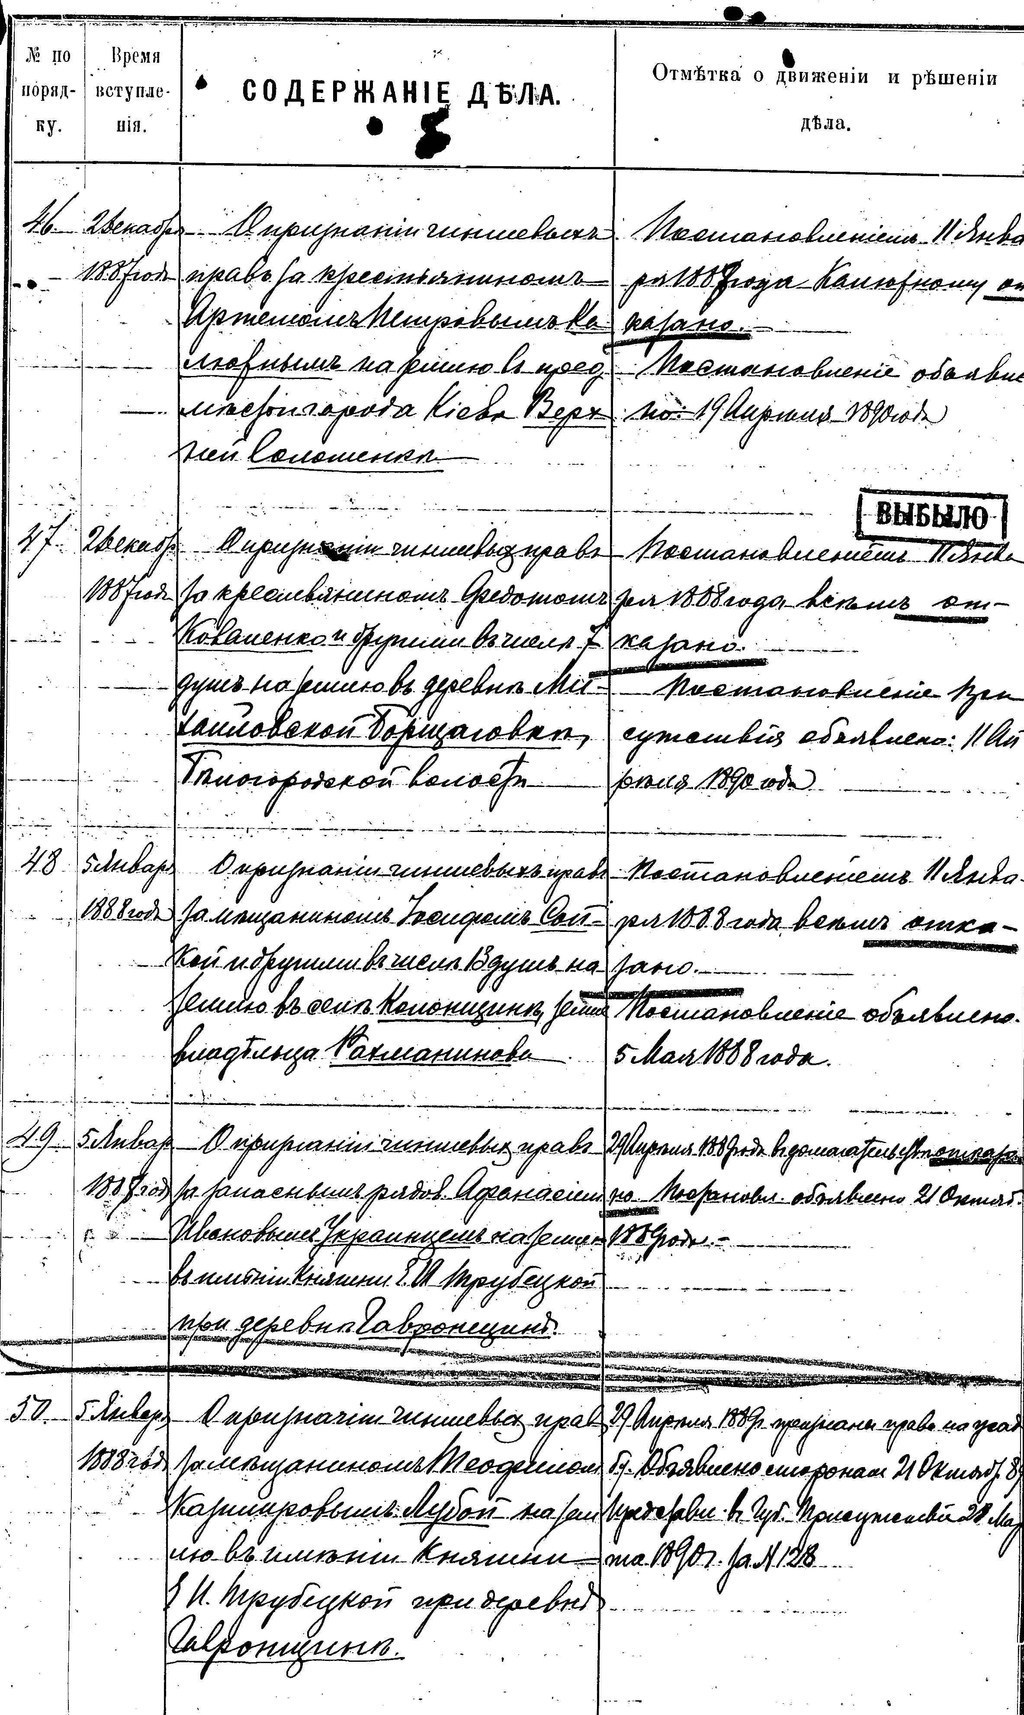 № по поряд- ку.
Время вступле- нія.
СОДЕРЖАНІЕ ДѢЛА.
Отмѣтка о движеніи и рѣшеніи дѣла.
46.
2 Декабр
1887 года
О признаніи чиншевыхъ
правъ за крестьяниномъ
Артемомъ Петровымъ Ка
люжнымъ на землю въ пред
мѣстіи города Кіева Верх
ней Соломенки
Постановленіемъ 11 Янва
ря 1887 года Калюжному от
казано.
Постановленіе объявле
но: 19 Апрѣля 1890 года
ВЫБЫЛО
47.
2 Декабр
1887 года
О признаніи чиншевыхъ правъ
за крестьяниномъ Федотомъ
Коваленко и другими въ числѣ 7
душъ на землю въ деревнѣ Ми-
хайловской Борщаговкѣ,
Бѣлогородской волости
Постановленіемъ 11 Янва
ря 1888 года всѣмъ от-
казано.
Постановленіе При
сутствія объявлено: 11 Ап
рѣля 1890 года
48
5 Январ
1888 года
О признаніи чиншевыхъ правъ
за мѣщаниномъ Іосифомъ Сой-
кой и другими въ числѣ 13 душъ на
землю въ селѣ Колонщинѣ, земле
владѣльца Рахманинова
Постановленіемъ 11 Янва-
ря 1888 года всѣмъ отка-
зано.
Постановленіе объявлено.
5 Мая 1888 года.
49
5 Январ
1887 год
О признаніи чиншевыхъ правъ
за запаснымъ рядов. Афанасіем
Ивановымъ Украинцемъ на землю
въ имѣніи Княгини Е. И. Трубецкой
при деревнѣ Гавронщинѣ.
29 Апрѣля 1889 года въ домогательствѣ отказа
но Постановл. объявлено 21 Октяб.
1889 года.-
50.
5 Январ
1888 год
О признаніи чиншевыхъ прав
за мѣщаниномъ Теофилом
Казимировымъ Лубой на зем
лю въ имѣніи Княгини
Е И. Трубецкой при деревнѣ
Гавронщинѣ.
29 Апрѣля 1889 г. признаны права на усад
бу. Объявлено сторонам 21 Октяб. 89
Представл. в Губ. Присутствіе 28 Мар
та 1890 г. за № 128